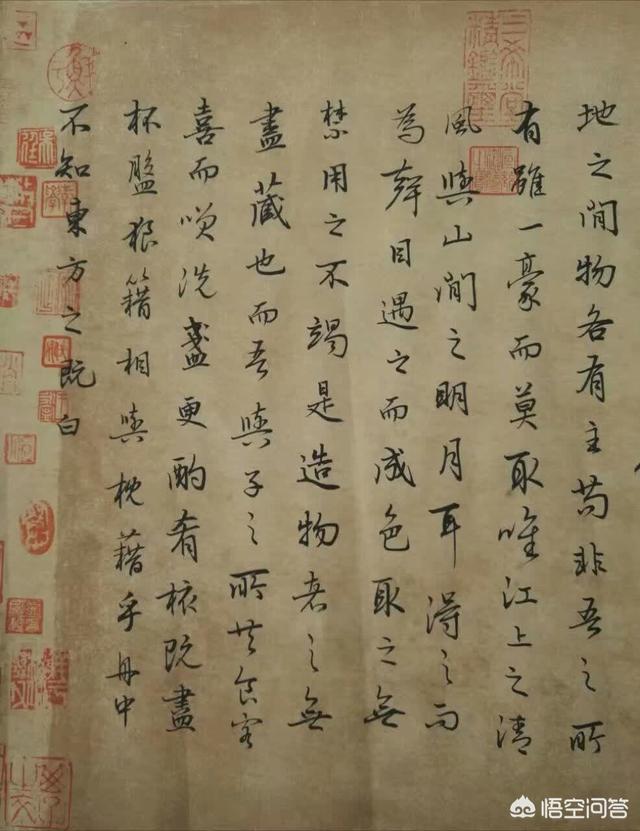 地之間物各有主苟非吾之所
有雖一豪而莫取唯江上之清
風與山間之明月耳得之而
為聲目遇之而成色取之無
禁用之不竭是造物者之無
盡藏也而吾與子之所共食客
喜而笑洗盞更酌肴核既盡
杯盤狼籍相與枕藉乎舟中
不知東方之既白
三希堂精鑑璽
悟空问答